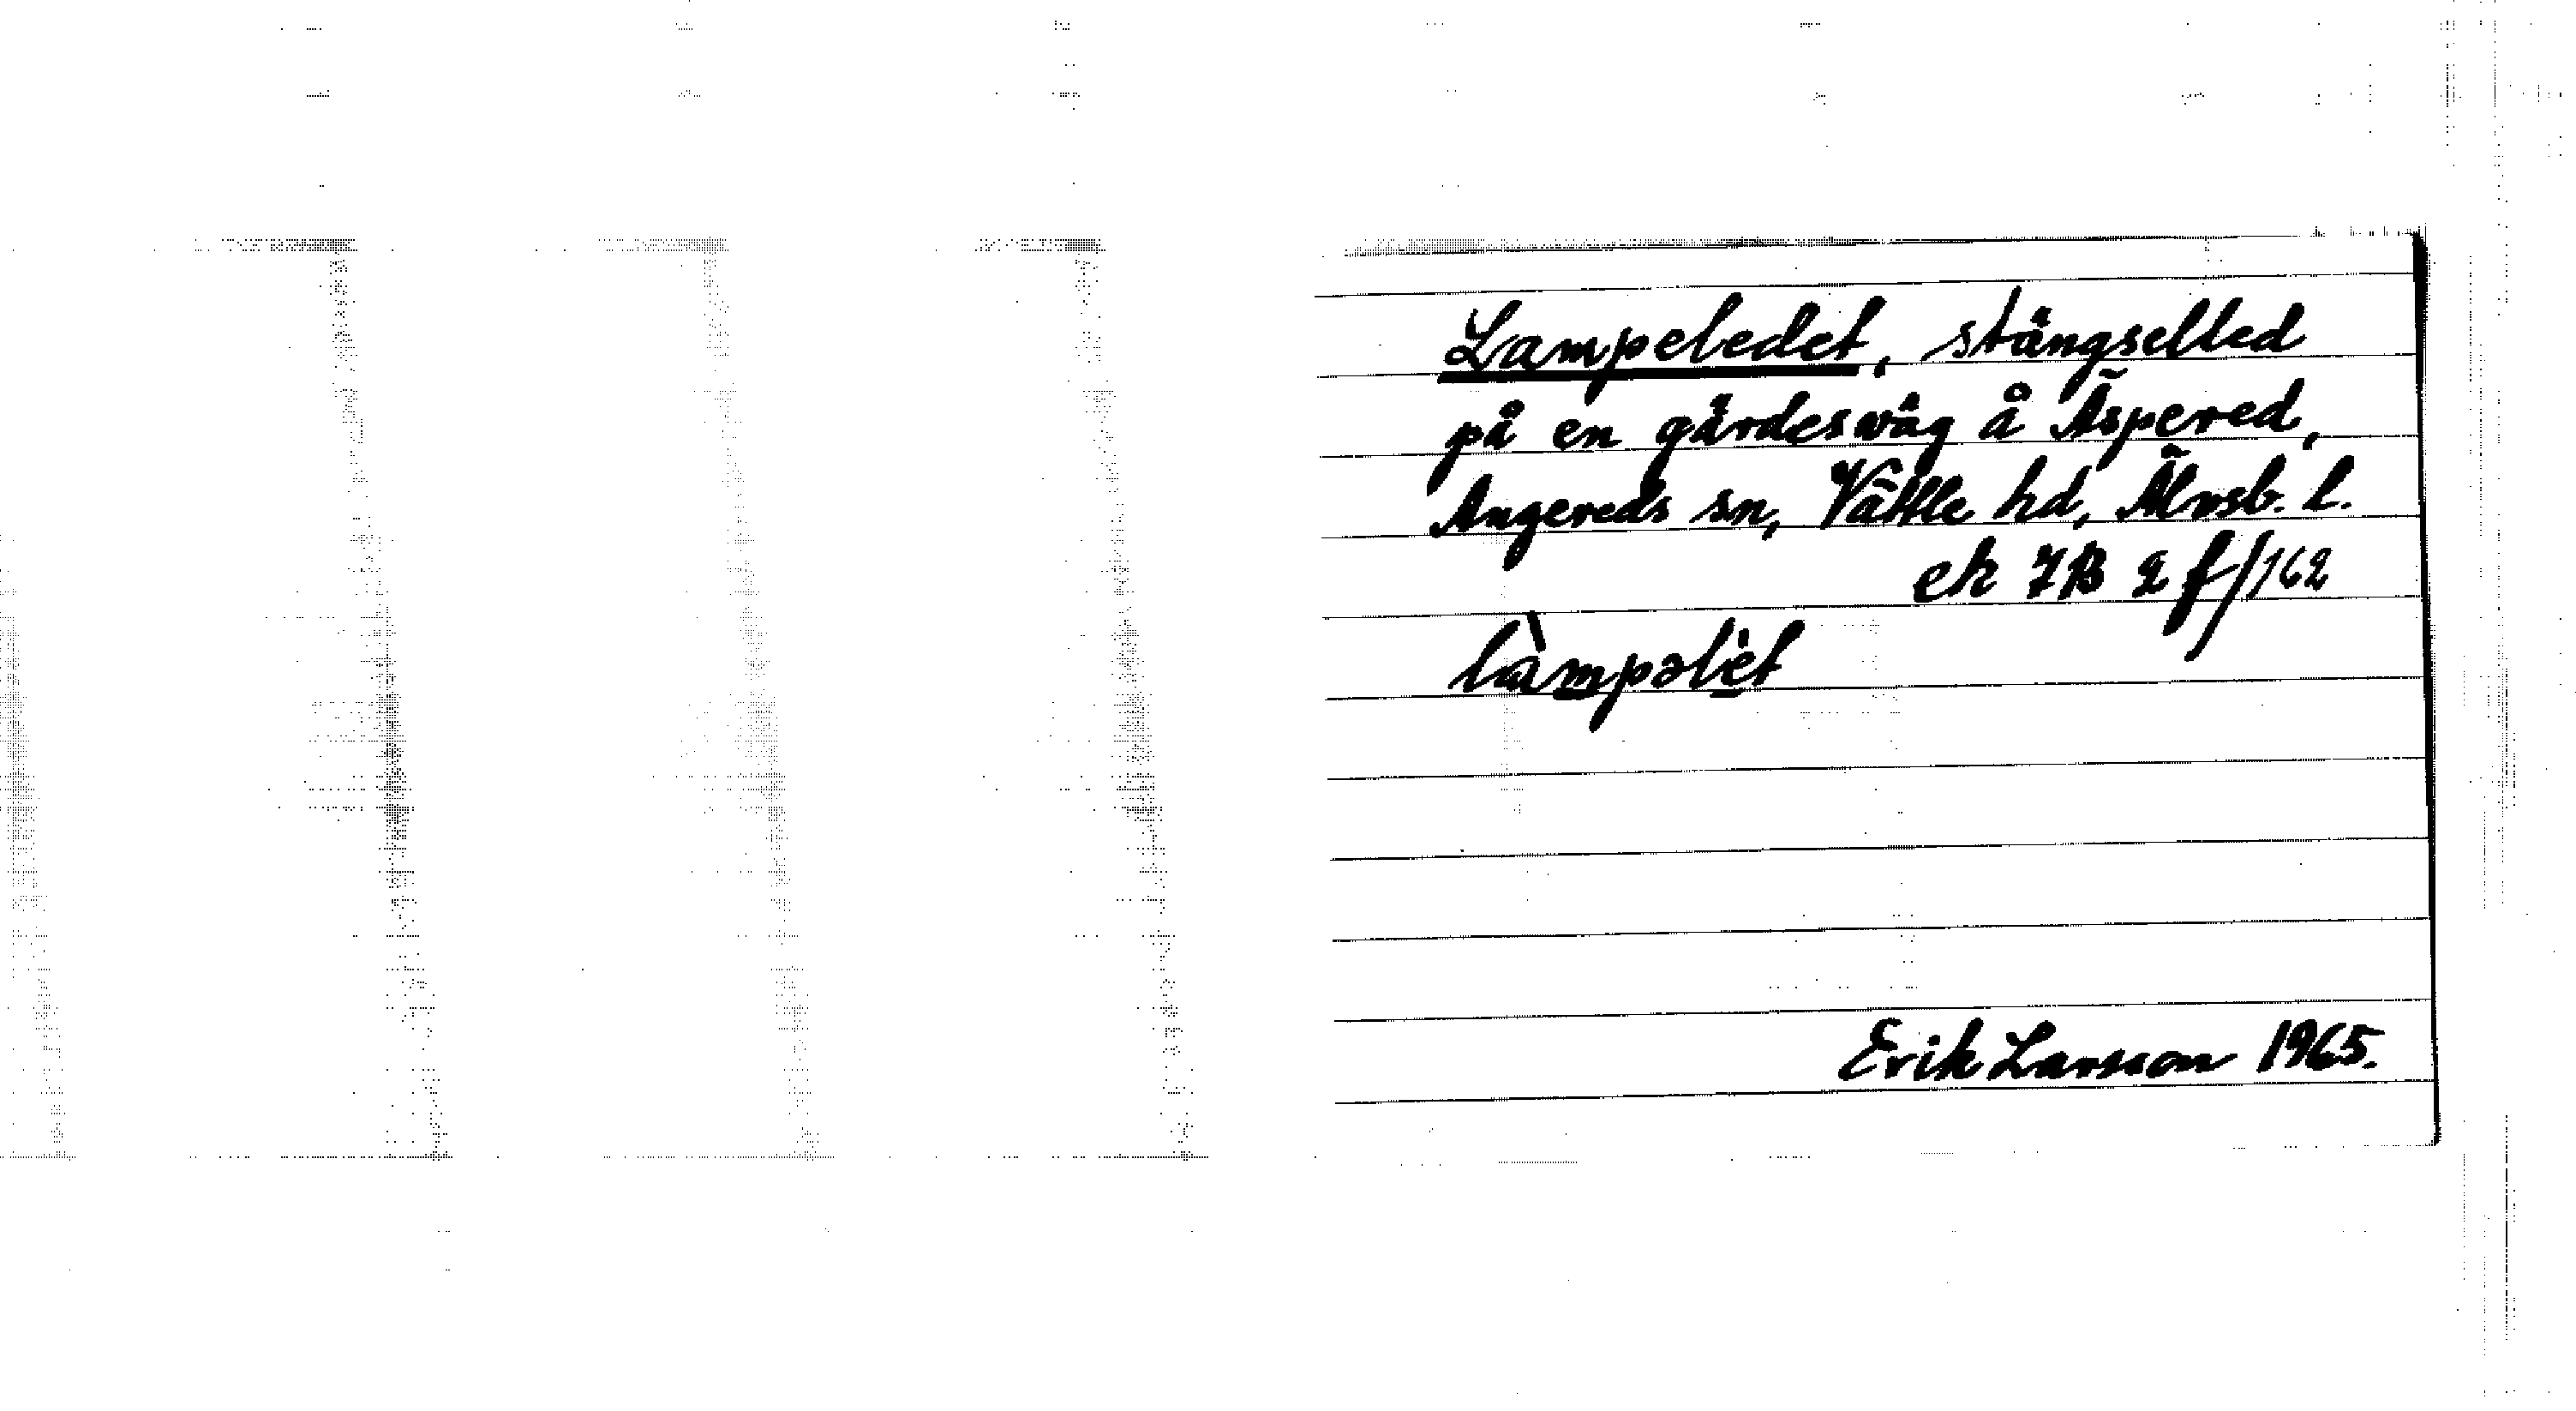 Lampeledet, stängselled
på en gärdesväg å Äspered,
Angereds sn, Vättle hd, Älvsb. l.
ek 7B 2 f/162
làmpəlèt
Erik Larsson 1965.